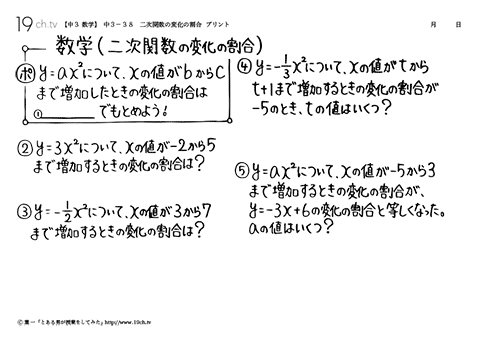 19ch.tv 【中3 数学】 中3-38 二次関数の変化の割合 プリント 月 日
数学(二次関数の変化の割合)
ポ y=ax²について、xの値がbからc
まで増加したときの変化の割合は
①________でもとめよう!
② y=3x²について、xの値が-2から5
まで増加するときの変化の割合は?
③ y=-1/2x²について、xの値が3から7
まで増加するときの変化の割合は?
④ y=-1/3x²について、xの値がtから
t+1まで増加するときの変化の割合が
-5のとき、tの値はいくつ?
⑤ y=ax²について、xの値が-5から3
まで増加するときの変化の割合が、
y=-3x+6の変化の割合と等しくなった。
aの値はいくつ?
© 葉一「とある男が授業をしてみた」http://www.19ch.tv